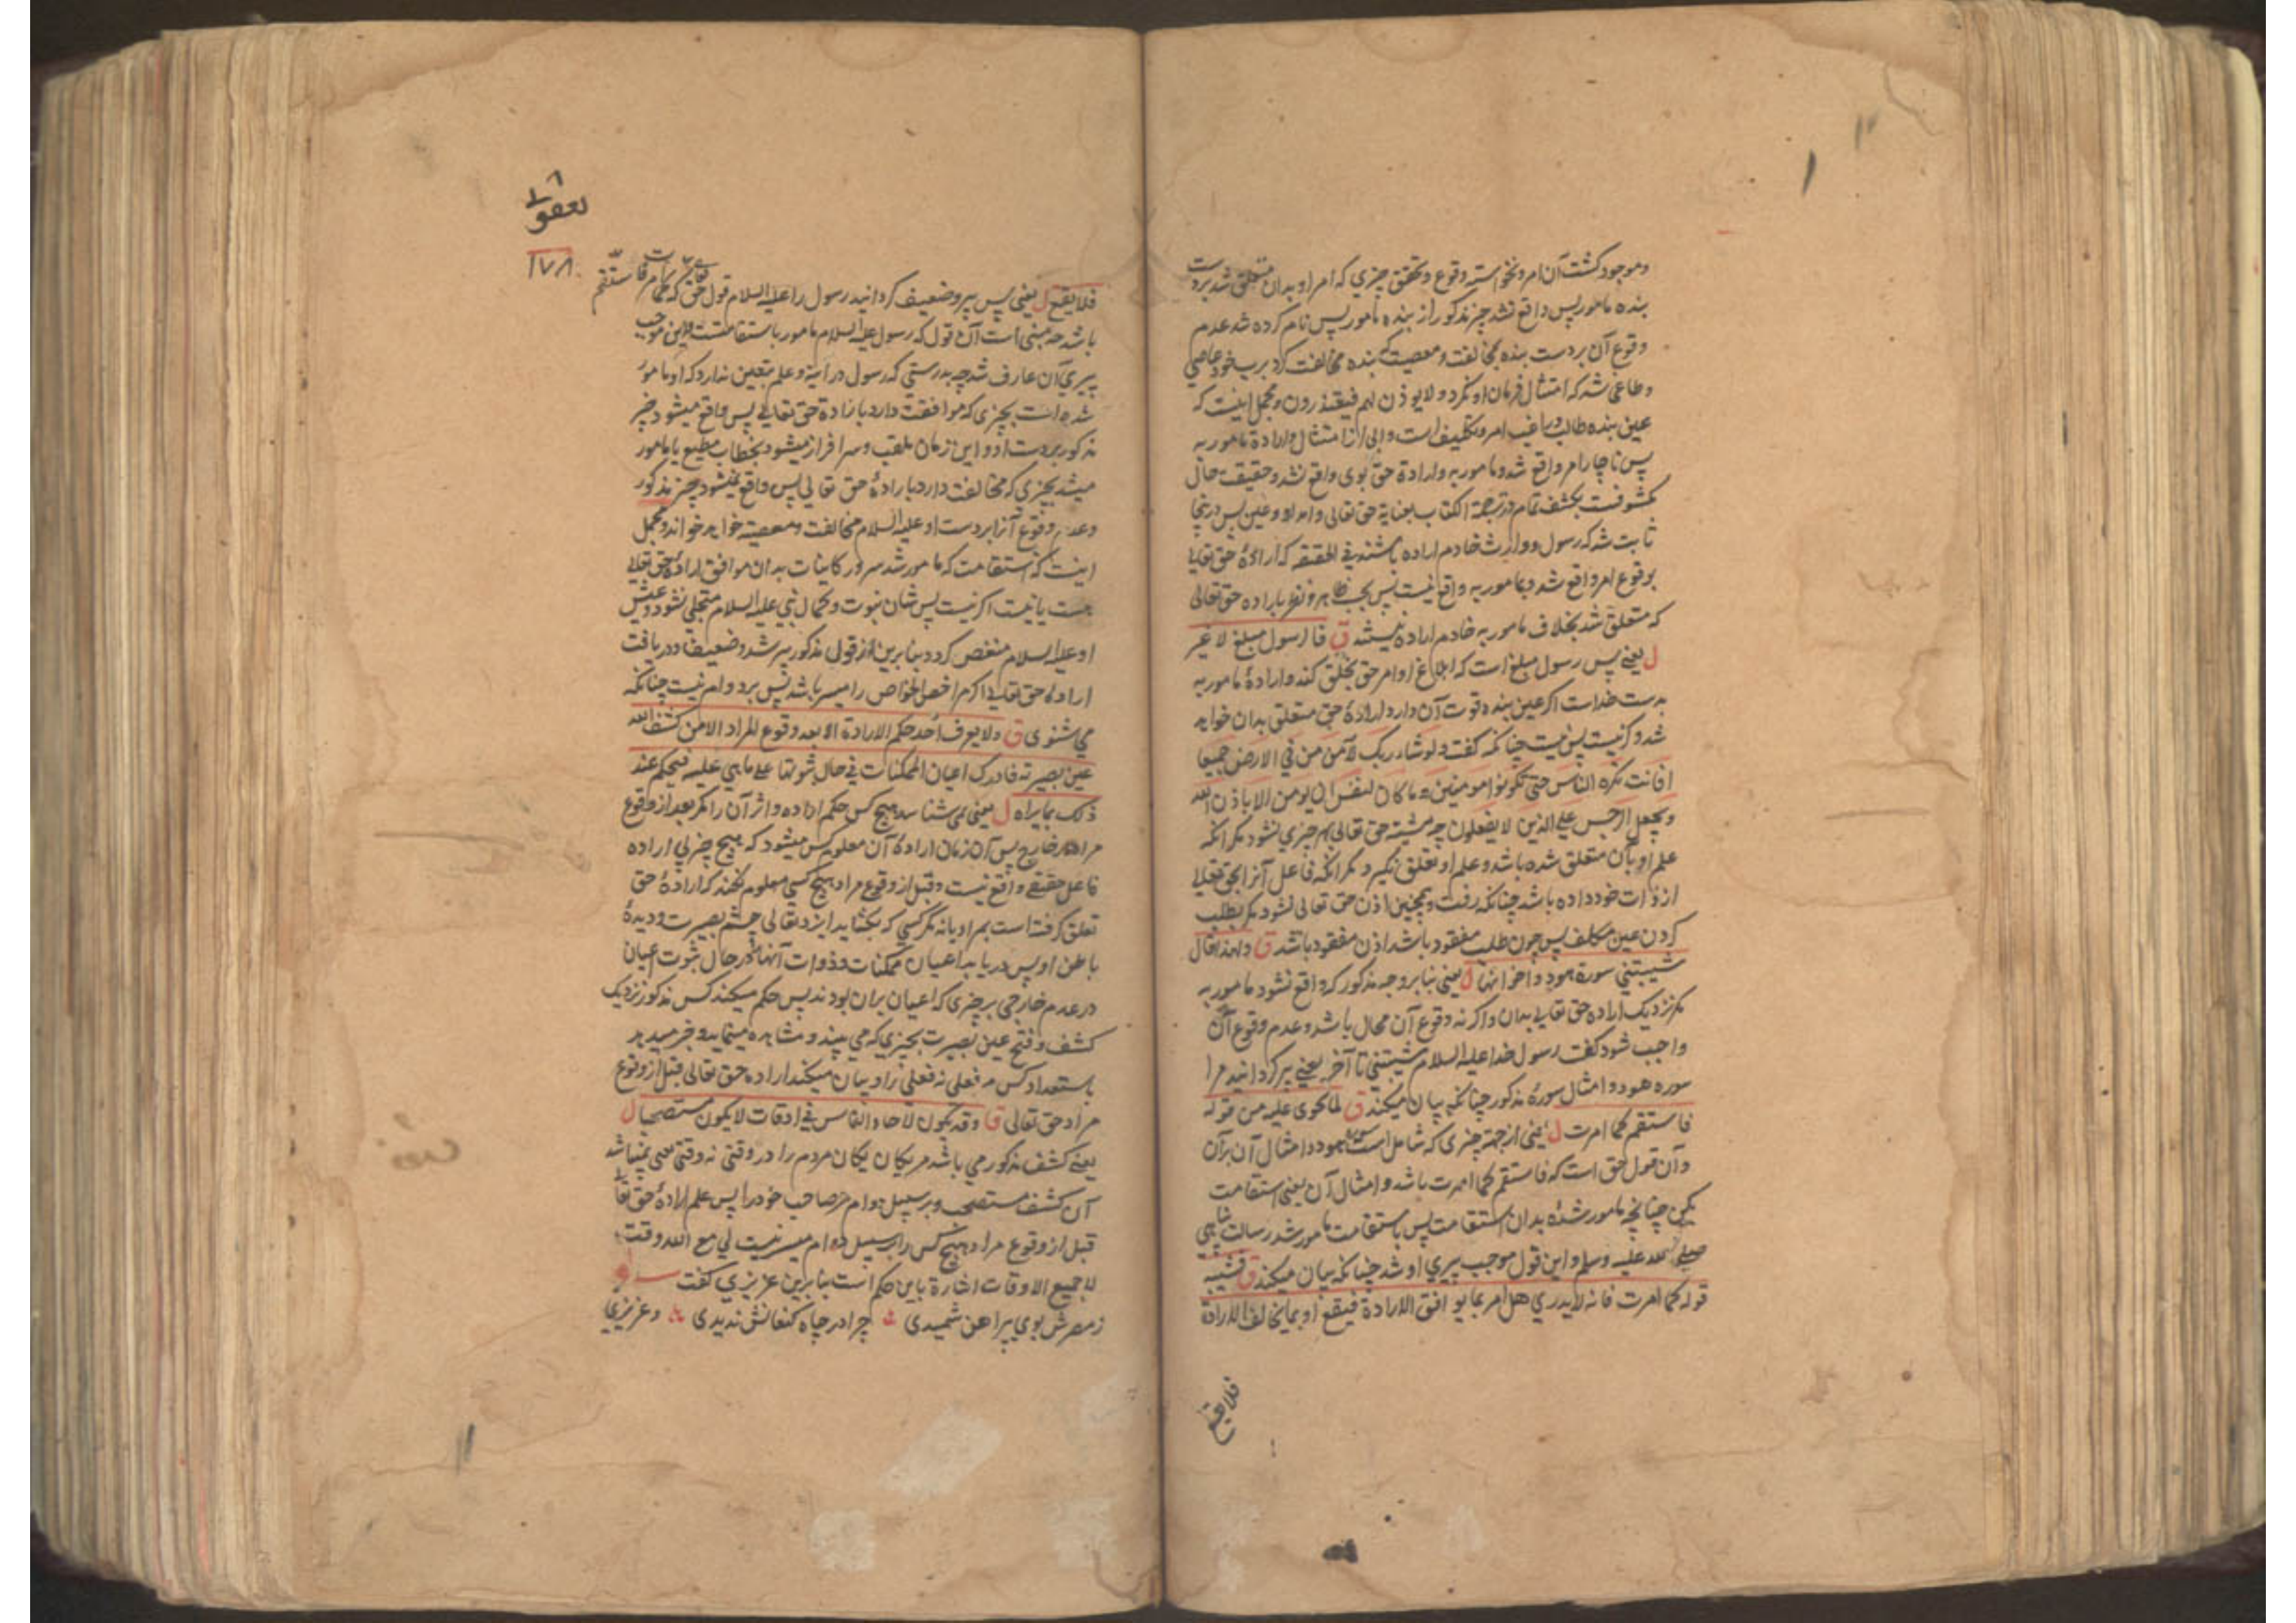 وموجود کشت آن امر ونخواسته وقوع وتحقق چیزي که امر او بدان متعلق شد بردست
بنده مامور پس واقع نشد چیز مذکور از بنده مامور پس نام کرده شد عدم
وقوع آن بردست بنده بمخالفت ومعصیت که بنده مخالفت کرد برب خود عاصي
وطاغی شد که امتثال فرمان او نکرد ولا یوذن لهم فیعتذرون ومجمل اینست که
عین بنده طالب وراغب امر وتکلیف است وابی از امتثال وارادة مامور به
پس ناچار امر واقع شد ومامور به وارادة حق بوی واقع نشد وحقیقت حال
مکشوفست بکشف تمام در ترجمة الکتاب بعنایة حق تعالی وامداد وعین پس درینجا
ثابت شد که رسول ووارث خادم اراده باشند في الحقیقه که ارادۀ حق تعالی
بوقوع امر واقع شد وبمامور به واقع نیست پس بحسب ظاهر ونفع باراده حق تعالی
که متعلق شد بخلاف مامور به خادم اراده نیستند ق فالرسول مبلغ لا غیر
ل یعنی پس رسول مبلغ است که ابلاغ اوامر حق بخلق کند وارادۀ مامور به
بدست خداست اکر عین بنده قوت آن دارد ارادۀ حق متعلق بدان خواهد
شد وکرنیست پس نیست چنانکه کفت ولو شاء ربک لآمن من في الارض جمیعا
افانت تکره الناس حتی تکونوا مومنین وما کان لنفس ان یومن الا باذن الله
ویجعل الرجس علی الذین لا یعقلون چه مشیة حق تعالی بهم چیزي نشود مکر انکه
علم او بآن متعلق شده باشد وعلم او تعلق نکیرد مکر انکه فاعل آنرا بحق تعالی
از ذات خود داده باشد چنانکه رفت وهمچنین اذن حق تعالی نشود مکر بطلب
کردن عین مکلف پس چون طلب مفقود باشد اذن مفقود باشد ق ولهذا قال
شیبتني سورة هود واخواتها ل یعنی بنابر وجه مذکور که واقع نشود مامور به
مکر نزدیک اراده حق تعالی بدان واکر نه وقوع آن محال باشد وعدم وقوع آن
واجب شود کفت رسول خدا علیه السلام شیبتني تا آخر یعنی پیر کردانید مرا
سوره هود وامثال سورۀ مذکور چنانکه بیان میکند ق لما تحوي علیه من قوله
فاستقم کما امرت ل یعنی از جهت چیزي که شامل است سوره هود وامثال آن بر آن
وآن قول حق است که فاستقم کما امرت باشد وامثال آن یعنی استقامت
بکن چنانچه مامور شدۀ بدان استقامت پس باستقامت مامور شد رسالت پناهي
صلی الله علیه وسلم واین قول موجب پیري او شد چنانکه بیان میکند ق فشیبه
قوله کما امرت فانه لا یدري هل امر بما یوافق الارادة فیقع او بما یخالف الارادة
فلا یقع
یعقوبی
١٧٨
فلا یقع ل یعنی پس پیر وضعیف کردانید رسول را علیه السلام قول حق که کما امرت فاستقم
باشد چه مبنی است آن قول که رسول علیه السلام مامور باستقامتست واین موجب
پیري آن عارف شد چه بدرستي که رسول درایة وعلم بتعین ندارد که او مامور
شده است بچیزی که موافقت دارد با ارادة حق تعالی پس واقع میشود چیز
مذکور بردست او واین زمان ملقب وسرافراز میشود بخطاب مطیع یا مامور
میشد بچیزي که مخالفت دارد با ارادۀ حق تعالی پس واقع نمیشود چیز مذکور
وعدم وقوع آنرا بردست او علیه السلام مخالفت ومعصیة خواهد خواند ومجمل
اینست که استقامت که مامور شد سرور کاینات بدان موافق ارادۀ حق تعالی
هست یا نیست اکر نیست پس شان نبوت وکمال نبي علیه السلام متجلی نشود وعیش
او علیه السلام منغص کردد بنابرین از قول مذکور پیر شد وضعیف ودریافت
ارادۀ حق تعالی اکرم اخص الخواص را میسر باشد پس بر دوام نیست چنانکه
مي شنوی ق ولا یعرف احد حکم الارادة الا بعد وقوع المراد الا من کشف الله
عین بصیرته فادرک اعیان الممکنات في حال ثبوتها علی ما هي علیه فیحکم عند
ذلک بما یراه ل یعنی نمی شناسد هیچ کس حکم اراده واثر آن را مکر بعد از وقوع
مراد در خارج پس آن زمان ارادۀ آن معلوم کس میشود که هیچ چیز بي اراده
فاعل حقیقي واقع نیست وقبل از وقوع مراد هیچ کسي معلوم نکند که ارادۀ حق
تعلق کرفته است بمراد یا نه مکر کسي که بکشاید ایزد تعالی چشم بصیرت ودیدۀ
باطن او پس دریابد اعیان ممکنات وذوات آنها در حال ثبوت اعیان
در عدم خارجي بر چیزی که اعیان بران بودند پس حکم میکند کس مذکور نزدیک
کشف وفتح عین بصیرت بچیزي که مي بیند ومشاهده مینماید وخبر میدهد
باستعداد کس مر فعلی نه فعلي را وبیان میکند اراده حق تعالی قبل از وقوع
مراد حق تعالی ق وقد یکون لآحاد الناس في اوقات لا یکون مستصحبا ل
یعنی کشف مذکور مي باشد مر یکان یکان مردم را در وقتی نه وقتی یعنی نمیباشد
آن کشف مستصحب وبر سبیل دوام مر صاحب خود را پس علم ارادۀ حق تعالی
قبل از وقوع مراد هیچ کس را بر سبیل دوام میسر نیست لي مع الله وقت
لا جمیع الاوقات اشارة باین حکم است بنابرین عزیزي کفت
زمصرش بوي پیراهن شمیدی چرا در چاه کنعانش ندیدی وعزیزي